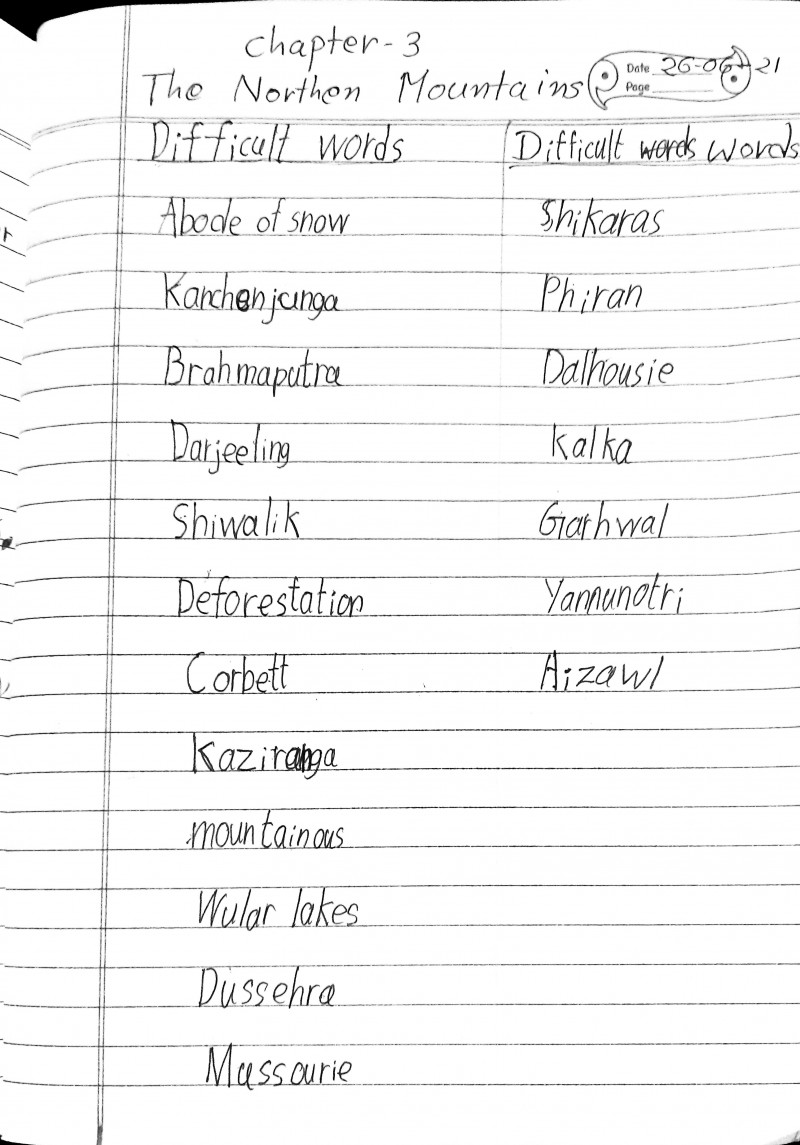 chapter-3
The Northen Mountains
Date 26-06-21
Page
Difficult words
Abode of snow
Kanchenjunga
Brahmaputra
Darjeeling
Shiwalik
Deforestation
Corbett
Kaziranga
mountainous
Wular lakes
Dussehra
Mussourie
Difficult words words
Shikaras
Phiran
Dalhousie
Kalka
Garhwal
Yamunotri
Aizawl